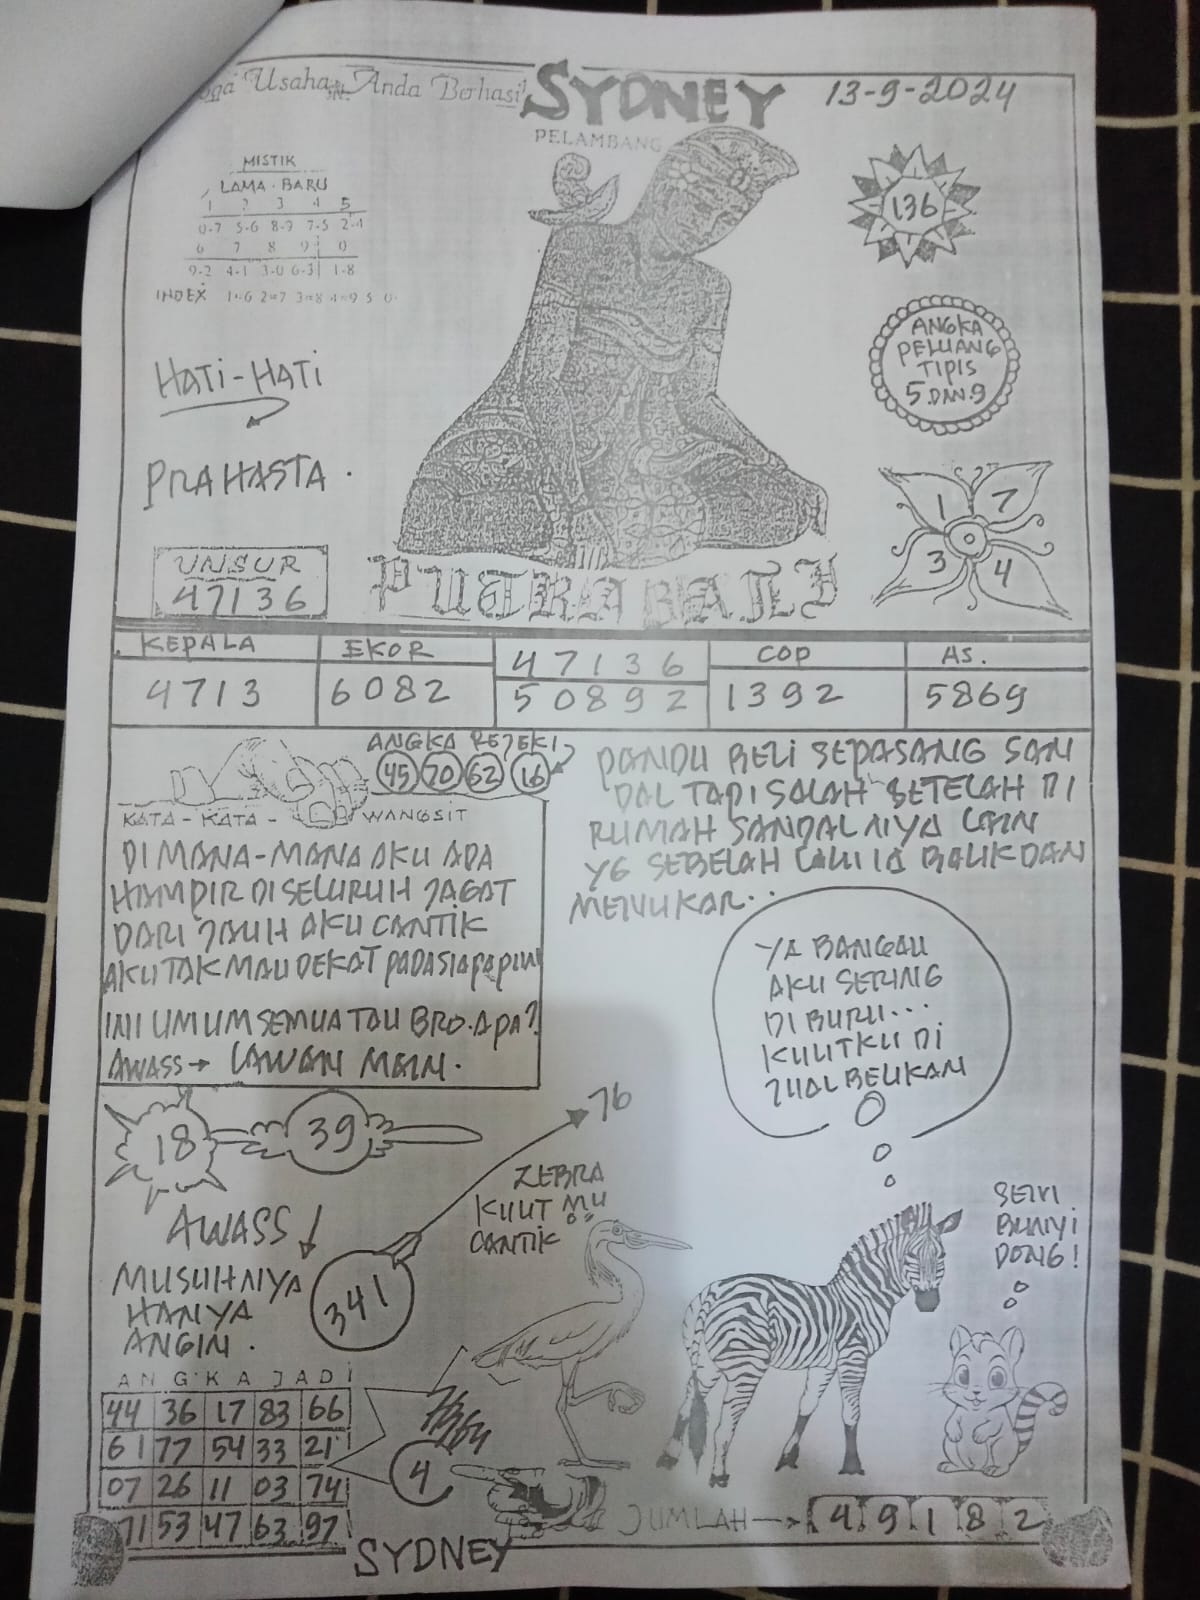 Usaha Anda Berhasil
SYDNEY
13-9-2024
PELAMBANG
MISTIK
LAMA - BARU
1 2 3 4 5
0-7 5-6 8-9 7-5 2-4
6 7 8 9 0
9-2 4-1 3-0 6-3 1-8
INDEX 1=6 2=7 3=8 4=9 5 0
136
ANGKA
PELUANG
TIPIS
5 DAN 9
HATI-HATI
PRAHASTA.
1 7
3 4
UNSUR
47136
PUTRA BALI
KEPALA EKOR 47136 COP AS.
4713 6082 50892 1392 5869
ANGKA REJEKI
45 70 62 16
KATA-KATA- WANGSIT
DI MANA-MANA AKU ADA
HAMPIR DI SELURUH JAGAT
DARI JAUH AKU CANTIK
AKU TAK MAU DEKAT PADA SIAPAPUN
INI UMUM SEMUA TAU BRO. APA?
AWASS → LAWAN MAIN.
PANDU BELI SEPASANG SAN
DAL TAPI SALAH SETELAH DI
RUMAH SANDALNIYA LAIN
YG SEBELAH LALU IA BALIK DAN
MENUKAR...
YA BANGAU
AKU SERING
DI BURU...
KULITKU DI
JUAL BELIKAN
18 39
76
ZEBRA
KULIT MU
CANTIK
AWASS
MUSUHNIYA
HANYA
ANGIN.
341
SEMBUNYI
DONG!
ANGKA JADI
44 36 17 83 66
61 77 54 33 21
07 26 11 03 74
71 53 47 63 97
4
JUMLAH → 4 9 1 8 2
SYDNEY